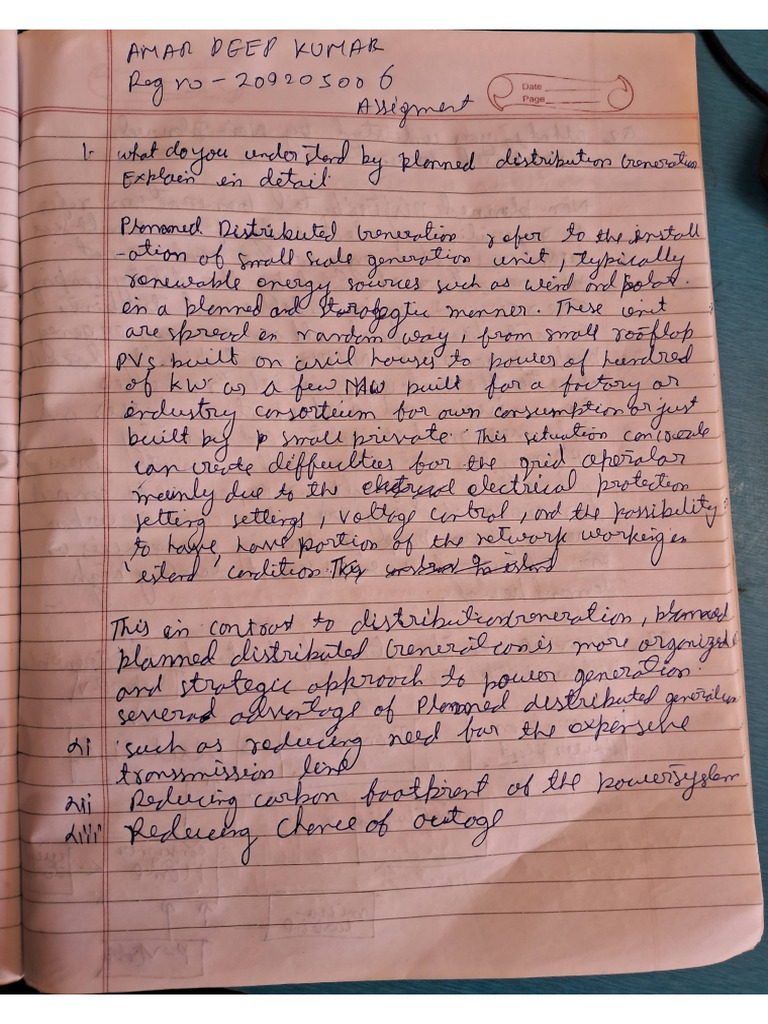 AMAR DEEP KUMAR
Reg no - 209205006
Date
Page
Assigment
1. what do you understand by planned distribution Generation
Explain in detail.
Planned Distributed Generation refer to the install
-ation of small scale generation unit, typically
renewable energy sources such as wind and
in a planned and manner. These unit
are spread in random way, from small rooftop
PVs built on civil houses to power of hundred
of KW or a few MW built for a factory or
industry consortium for own consumption or just
built by small private. This situation can
can create difficulties for the grid operator
mainly due to the electrical protection
setting settings, voltage control, and the possibility
to have have portion of the network working in
'island' condition.
This in contrast to distribution Generation, planned
planned distributed Generation is more organized
and strategic approach to power generation.
several advantage of Planned distributed generation
i such as reducing need for the expensive
transmission line
ii Reducing carbon footprint of the power system
iii Reducing Chance of outage